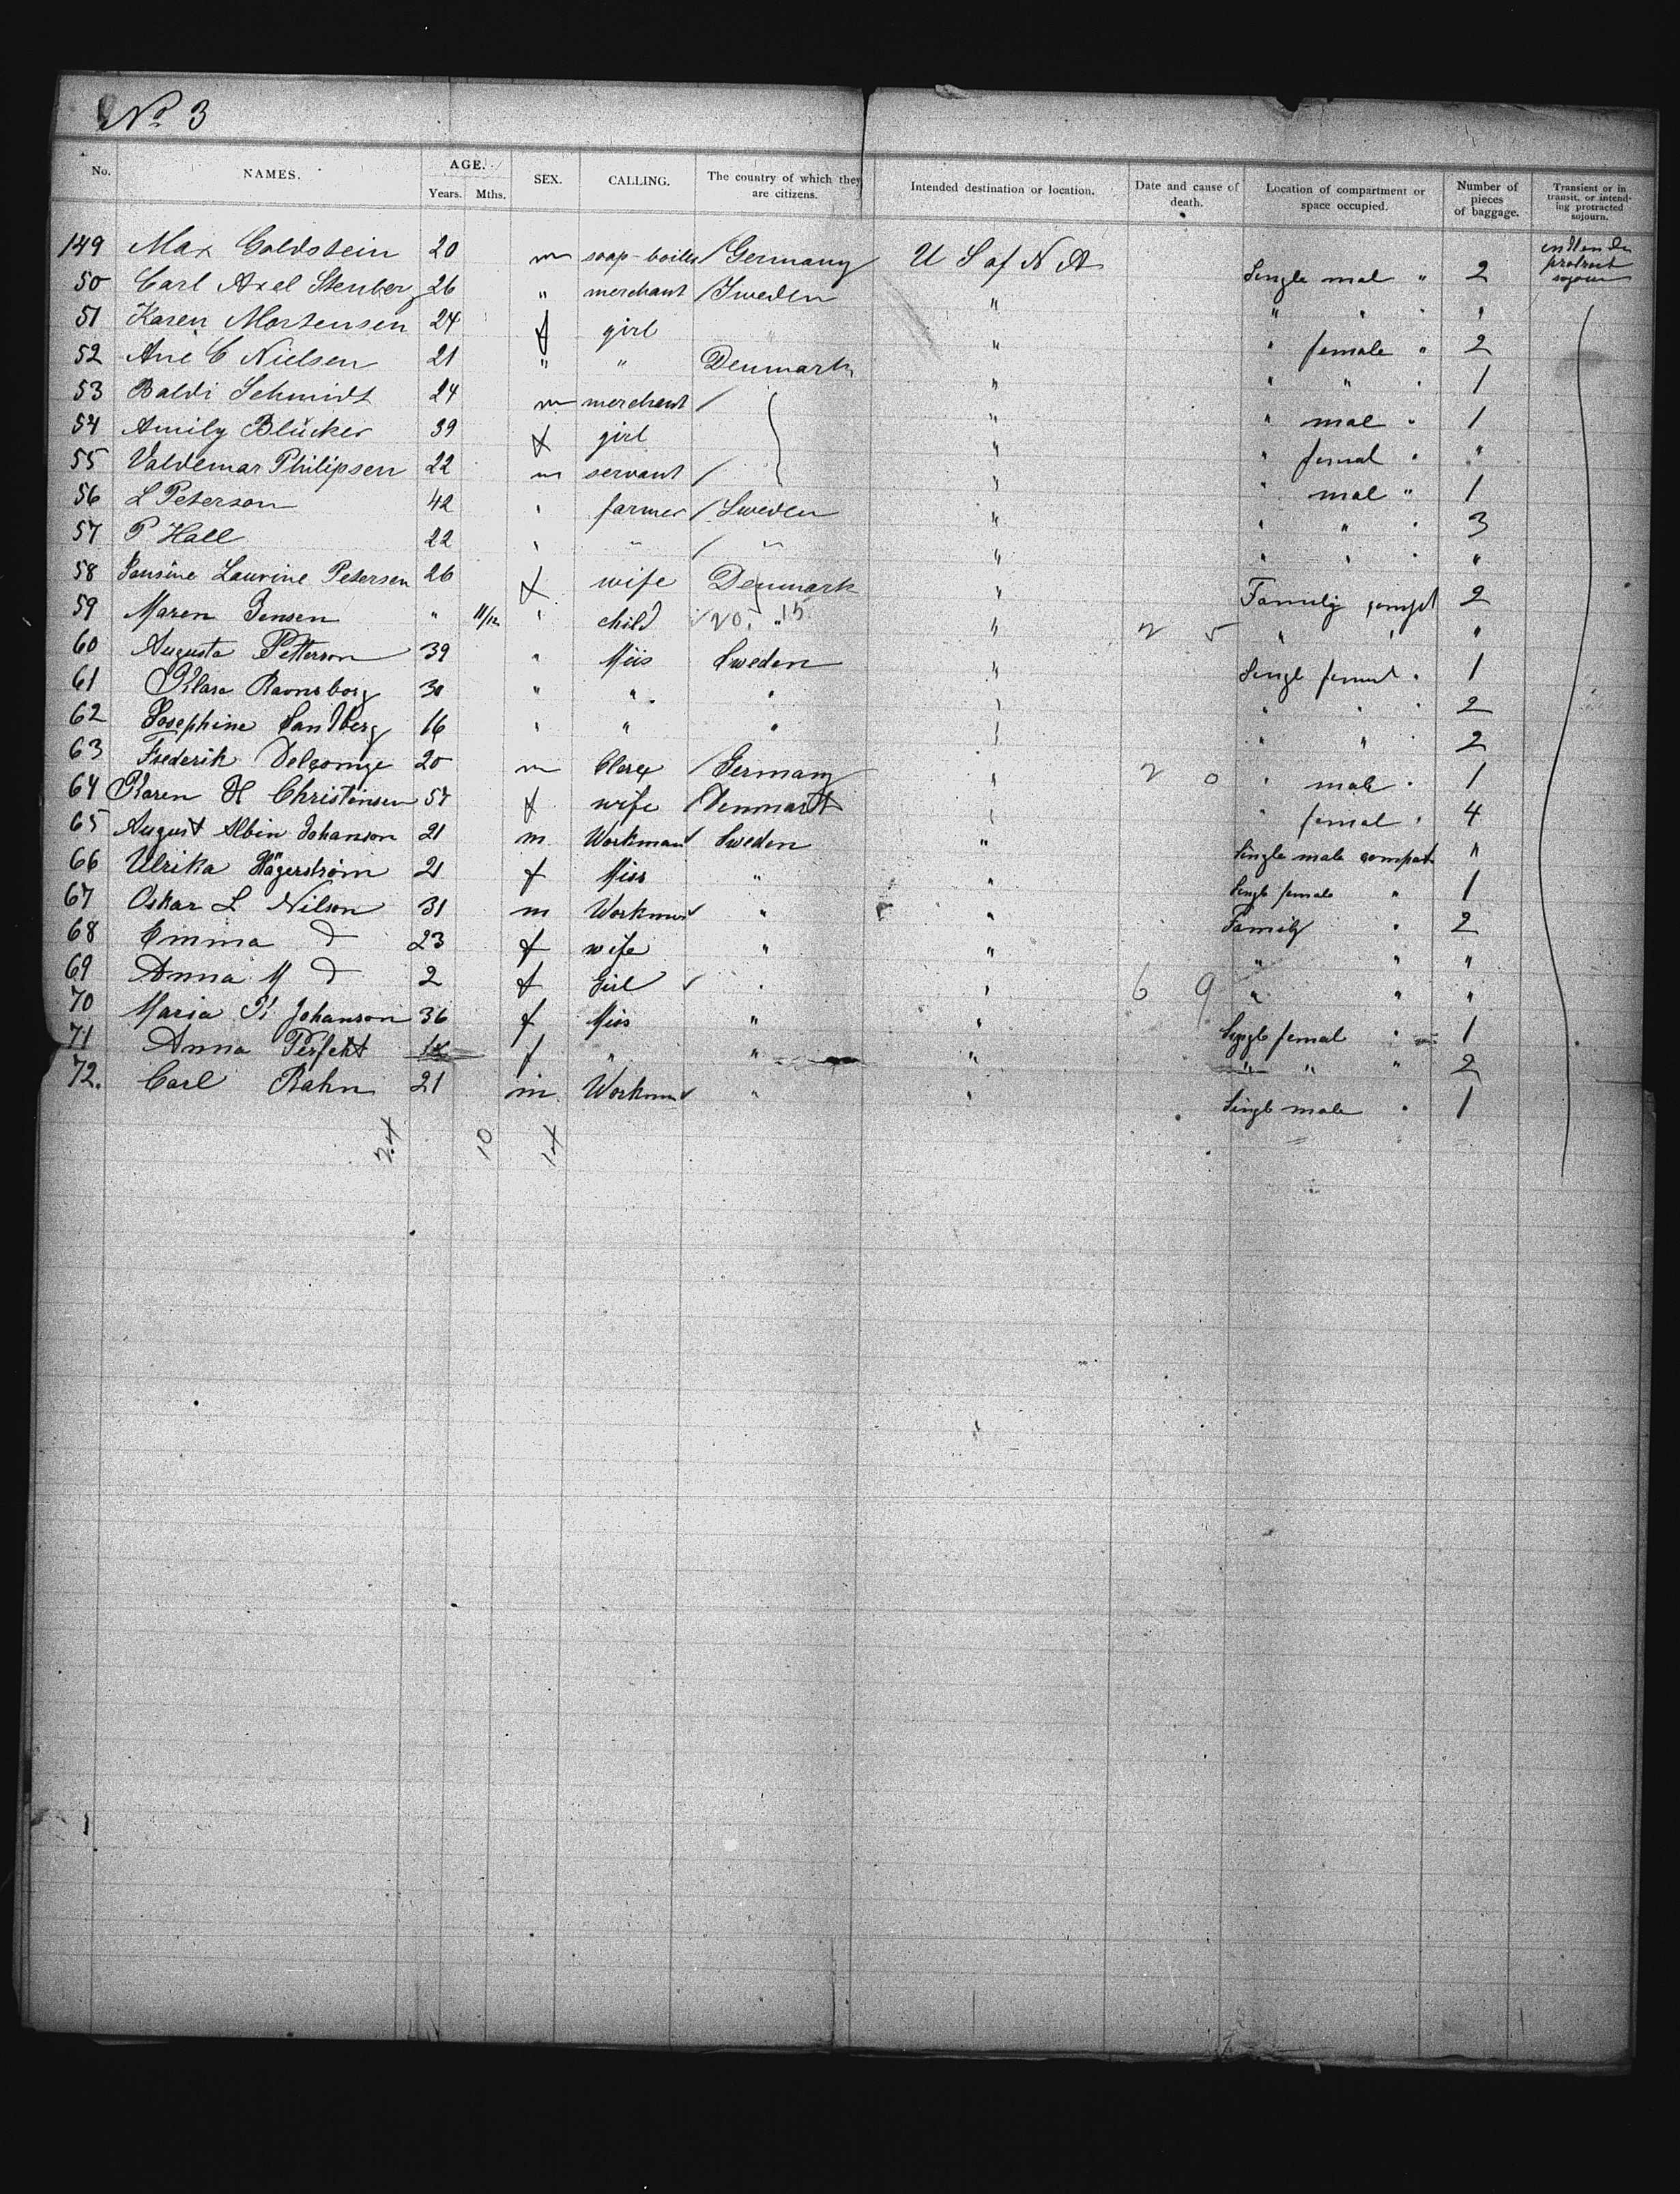 No 3
No. NAMES. AGE. Years. Mths. SEX. CALLING. The country of which they are citizens. Intended destination or location. Date and cause of death. Location of compartment or space occupied. Number of pieces of baggage. Transient or in transit, or intending protracted sojourn.
149 Max Goldstein 20 m soap-boiler / Germany U S of N A Single mal " 2
50 Carl Axel Stenberg 26 " merchant / Sweden " " " " "
51 Karen Mortensen 24 f girl " " " female " 2
52 Ane C Nielsen 21 " " Denmark " " " " 1
53 Baldi Schmidt 24 m merchant / " " mal " 1
54 Amily Blücker 39 f girl " " femal " "
55 Valdemar Philipsen 22 m servant / " " mal " 1
56 L Peterson 42 " farmer / Sweden " " " " 3
57 P Hall 22 " " / " " " " " "
58 Laurine Petersen 26 f wife Denmark " Family compt 2
59 Maren Jensen " 11/12 " child " " 2 5 " " "
60 Augusta Petterson 39 " Miss Sweden " Singl femal " 1
61 Klara Ravnsborg 30 " " " " " " " 2
62 Josephine Sandberg 16 " " " " " " " 2
63 Frederik 20 m Clerk / Germany " 2 0 " male " 1
64 Karen H Christensen 57 f wife / Denmark " " femal " 4
65 August Albin Johanson 21 m Workman Sweden " Single male compat "
66 Ulrika Hägerström 21 f Miss " " Singl female " 1
67 Oskar L Nilson 31 m Workman " " Family " 2
68 Emma D 23 f wife " " " " "
69 Anna M D 2 f Girl " " 6 9 " " "
70 Maria K Johanson 36 f Miss " " Singl femal " 1
71 Anna Perfekt f " " " " " " 2
72. Carl Rahn 21 m Workman " " Singl male " 1
24 10 14